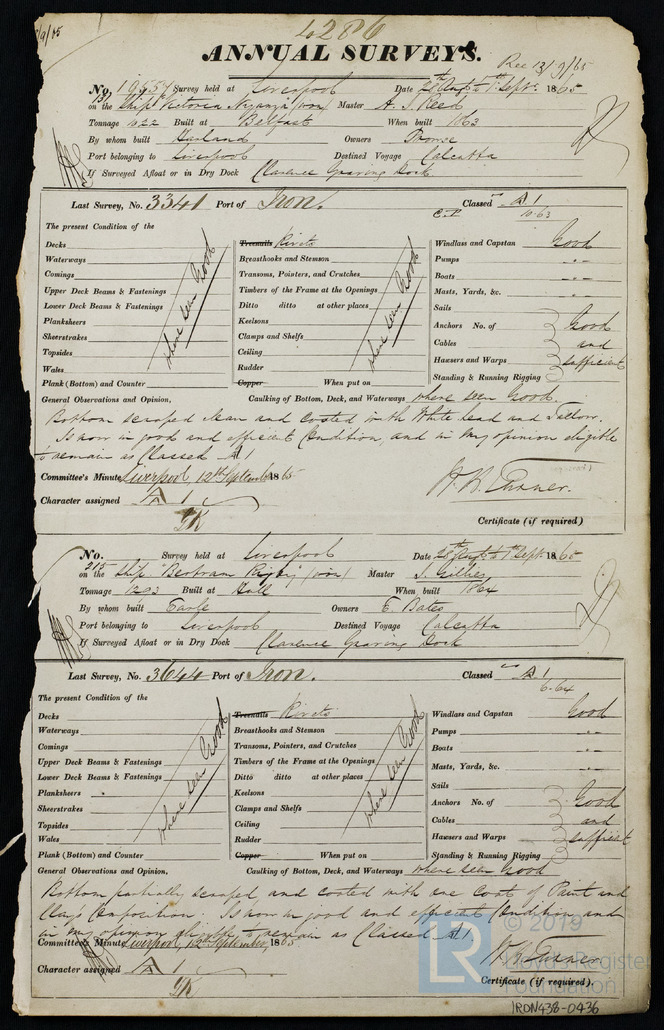 4286
ANNUAL SURVEYS.
Rec 13/9/65
No. 19557 Survey held at Liverpool Date 28th Augt & 7th Septr. 1865
on the Ship "Victoria Nyanza" (iron) Master A. J. Reed
Tonnage 1022 Built at Belfast When built 1863
By whom built Harland Owners
Port belonging to Liverpool Destined Voyage Calcutta
If Surveyed Afloat or in Dry Dock Clarence Graving Dock
Last Survey, No. 3341 Port of Iron. Classed A 1
10.63
The present Condition of the
Decks Treenails Rivets Windlass and Capstan Good
Waterways Breasthooks and Stemson Pumps " "
Comings Transoms, Pointers, and Crutches Boats " "
Upper Deck Beams & Fastenings Timbers of the Frame at the Openings Masts, Yards, &c. " "
Lower Deck Beams & Fastenings Ditto ditto at other places Sails
Planksheers Keelsons Anchors No. of Good
Sheerstrakes Clamps and Shelfs Cables and
Topsides Ceiling Hawsers and Warps sufficient
Wales Rudder Standing & Running Rigging
where seen Good where seen Good
Plank (Bottom) and Counter Copper When put on
General Observations and Opinion, Caulking of Bottom, Deck, and Waterways where seen Good.
Bottom scraped clean and coated with White lead and Tallow.
Is now in good and efficient Condition, and in my opinion eligible
to remain as Classed A 1
Committee's Minute Liverpool, 12th September 1865
Character assigned A 1
Certificate (if required)
No. Survey held at Liverpool Date 28th Augt & 7th Septr. 1865
215
on the Ship "Bertram Rigby" (iron) Master J. Gillies
Tonnage 1203 Built at Hull When built 1864
By whom built Earle Owners E. Bates
Port belonging to Liverpool Destined Voyage Calcutta
If Surveyed Afloat or in Dry Dock Clarence Graving Dock
Last Survey, No. 3644 Port of Iron. Classed A 1
6.64
The present Condition of the
Decks Treenails Rivets Windlass and Capstan Good
Waterways Breasthooks and Stemson Pumps " "
Comings Transoms, Pointers, and Crutches Boats " "
Upper Deck Beams & Fastenings Timbers of the Frame at the Openings Masts, Yards, &c. " "
Lower Deck Beams & Fastenings Ditto ditto at other places Sails
Planksheers Keelsons Anchors No. of Good
Sheerstrakes Clamps and Shelfs Cables and
Topsides Ceiling Hawsers and Warps sufficient
Wales Rudder Standing & Running Rigging
where seen Good where seen Good
Plank (Bottom) and Counter Copper When put on
General Observations and Opinion, Caulking of Bottom, Deck, and Waterways where seen Good
Bottom partially scraped, and coated with one Coat of Paint and
Clays Composition. Is now in good and efficient Condition and
in my opinion eligible to remain as Classed A 1.
Committee's Minute Liverpool, 12th September, 1865
Character assigned A 1
Certificate (if required)
LR © 2019
Lloyd's Register
Foundation
IRON438-0436